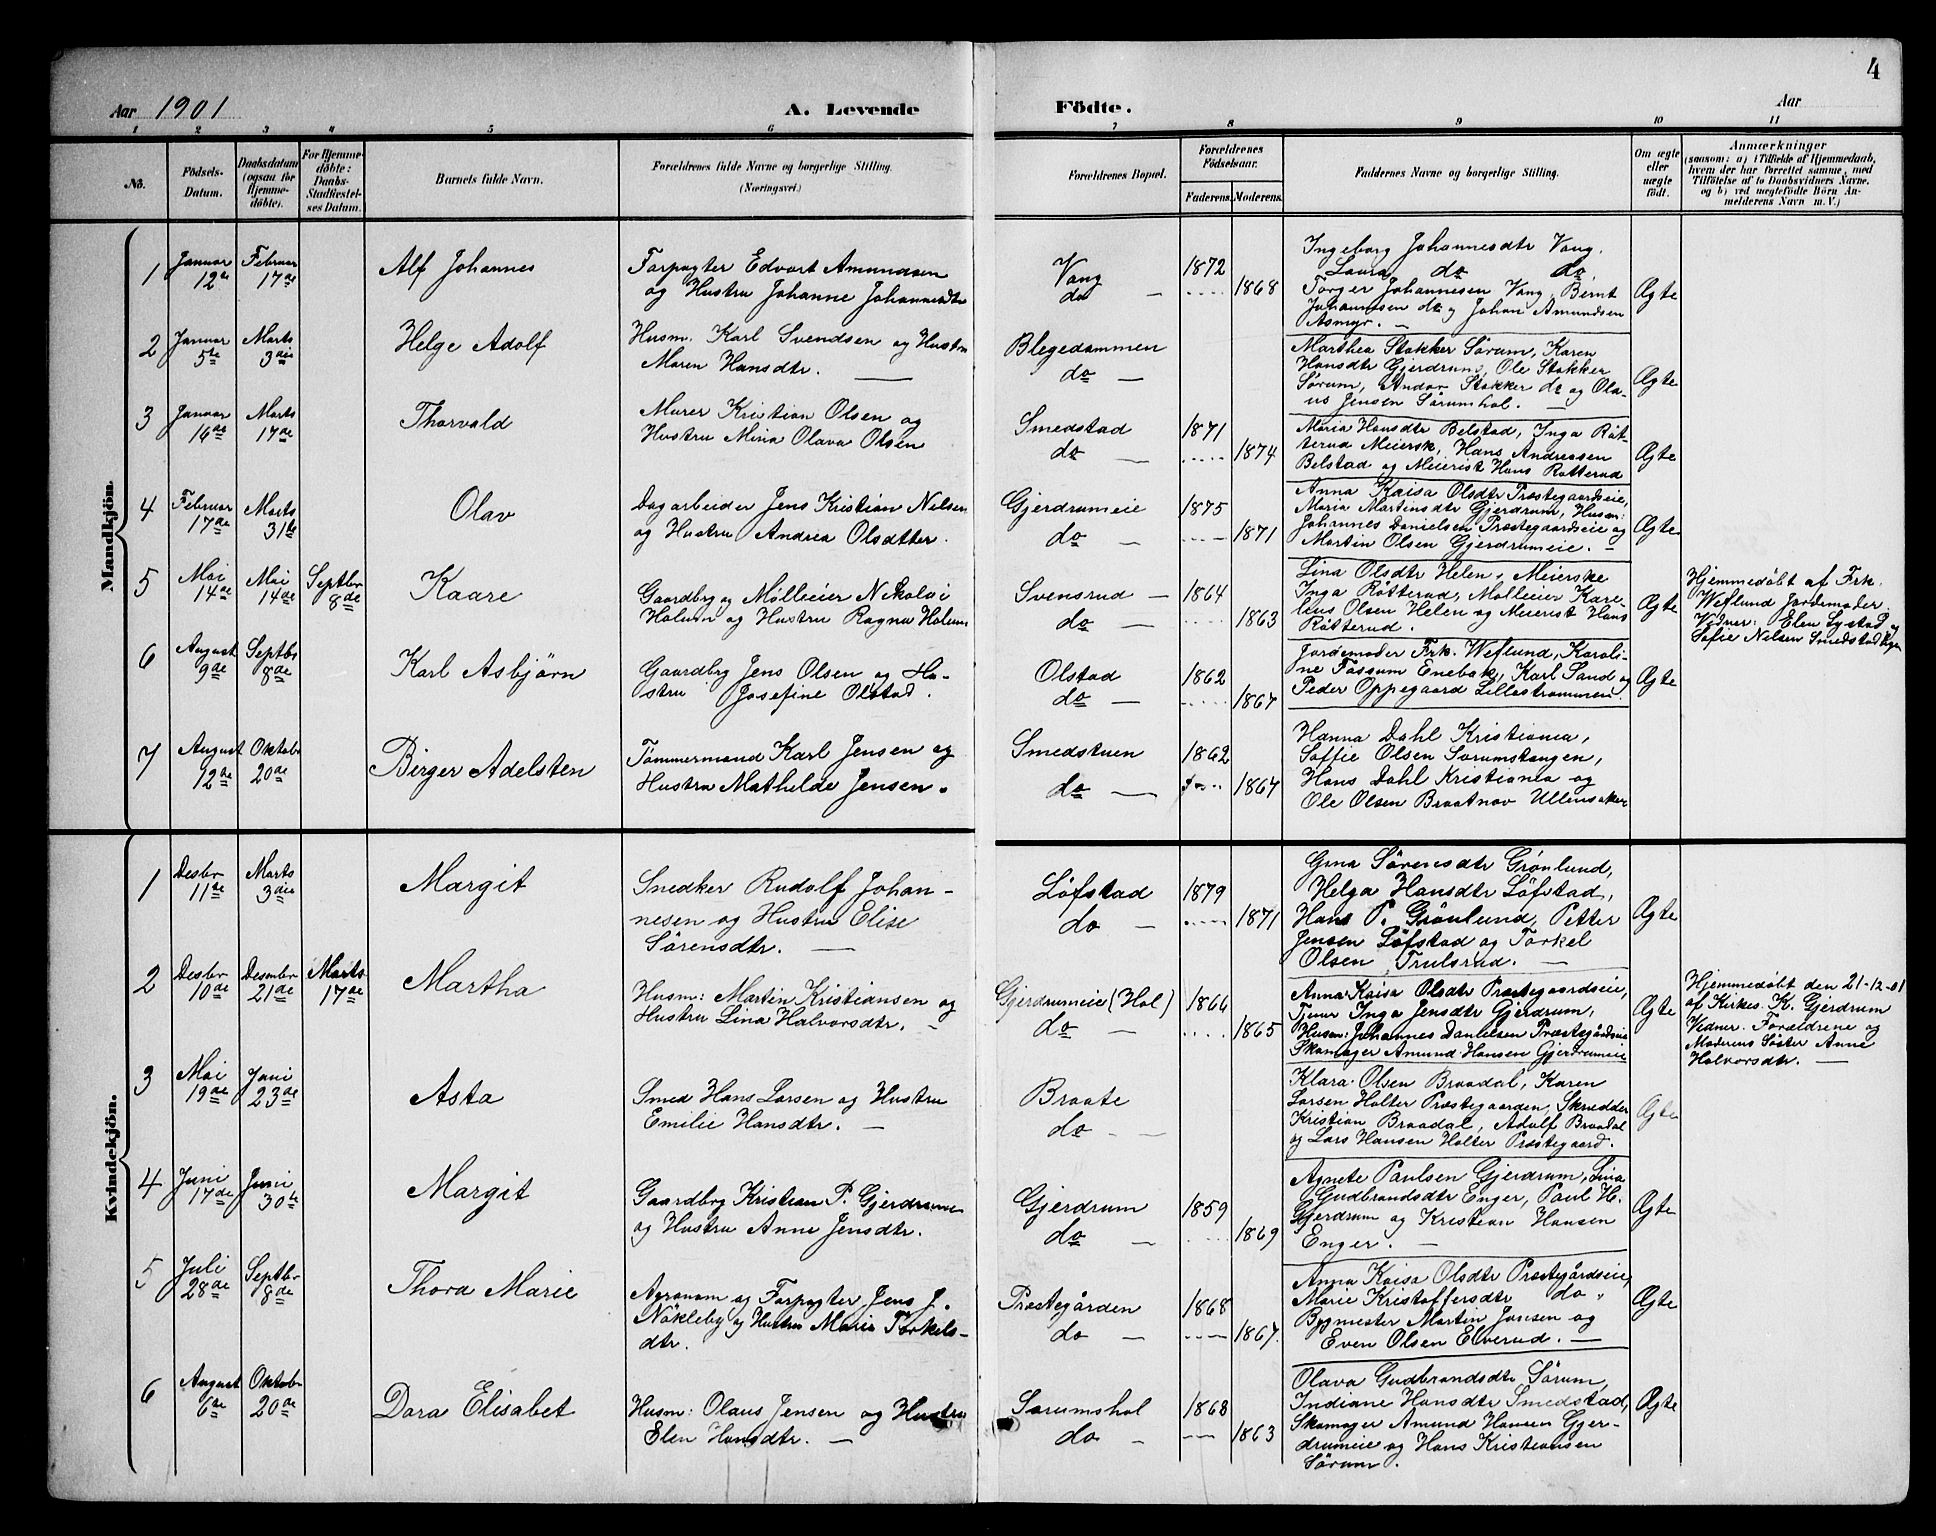 4
Aar 1901 A. Levende Födte. Aar
1 2 3 4 5 6 7 8 9 10 11
No. Födsels-Datum. Daabsdatum (ogsaa for Hjemme-döbte). For Hjemme-döbte: Daabs-Stadfæstel-ses Datum. Barnets fulde Navn. Forældrenes fulde Navne og borgerlige Stilling. (Næringsvei.) Forældrenes Bopæl. Forældrenes Födselsaar. Faderens. Moderens. Faddernes Navne og borgerlige Stilling. Om ægte eller uægte födt. Anmærkninger (saasom: a) i Tilfælde af Hjemmedaab, hvem der har forrettet samme, med Tilföielse af to Daabsvidners Navne, og b) ved uægtefödte Börn An-melderens Navn m. V.)
Mandkjön.
1 Januar 12te Februar 17de Alf Johannes
Forpagter Edvart Amundsen
og Hustru Johanne Johannesdtr
Vang 1872
do — 1868
Ingeborg Johannesdtr Vang.
Laura do do.
Torger Johannesen Vang, Bernt
Johannesen do og Johan Amundsen
Asmyr. —
Ægte
2 Januar 5te Marts 3die Helge Adolf
Husm. Karl Svendsen og Hustru
Maren Hansdtr. —
Blegedammen
do —
Marthea Stokker Sørum, Karen
Hansdtr Gjerdrum, Ole Stokker
Sörum, Andor Stokker do og Ola-
us Jensen Sörumhol. —
Ægte
3 Januar 16de Marts 17de Thorvald
Murer Kristian Olsen og
Hustru Mina Olava Olsen
Smedstad 1871
do — 1874
Maria Hansdtr Belstad, Inga Röt-
terud Meiersk, Hans Andreasen
Belstad og Meierist Hans Rötterud
Ægte
4 Februar 17de Marts 31te Olav
Dagarbeider Jens Kristian Nilsen
og Hustru Andrea Olsdtter.
Gjerdrumeie 1875
do — 1871
Anna Kaisa Olsdtr Præstegaardseie,
Maria Martinsdtr Gjerdrum, Husm:
Johannes Danielsen Præstegaardseie og
Martin Olsen Gjerdrumeie. —
Ægte
5 Mai 14de Mai 14de Septbr 8de Kaare
Gaardbr og Mølleeier Nikolai
Holum og Hustru Ragna Holum
Svensrud — 1864
do — 1863
Lina Olsdtr Helen, Meierske
Inga Rötterud, Mølleeier Kare-
lius Olsen Helen og Meierist Hans
Rötterud.
Ægte
Hjemmedøbt af Frk.
Weflund Jordemoder.
Vidner: Elen Lystad og
Sofie Nilsen Smedstad
6 August 9de Septbr 8de Karl Asbjörn
Gaardbrg Jens Olsen og Hu-
stru Josefine Olstad.
Olstad 1862
do — 1867
Jordemoder Frk. Weflund, Karoli-
ne Fossum Enebak, Karl Sand og
Peder Oppegaard Lillestrømmen.
Ægte
7 August 12de Oktobr 20de Birger Adelsten
Tömmermand Karl Jensen og
Hustru Mathilde Jensen.
Smedstuen 1862
do — 1867
Hanna Dahl Kristiania,
Soffie Olsen Sorumstangen,
Hans Dahl Kristiania og
Ole Olsen Braatnov Ullensaker
Kvindekjön.
1 Desbr 11te Marts 3die Margit
Snedker Rudolf Johan-
nesen og Hustru Elise
Sörensdtr. —
Löfstad 1879
do — 1871
Gina Sörensdtr Grönlund,
Helga Hansdtr Löfstad,
Hans P. Grönlund, Petter
Jensen Löfstad og Torkel
Olsen Trulsrud. —
Ægte
2 Desbr 10de Desembr 21de Marts 17de Martha
Husm: Martin Kristiansen og
Hustru Lina Halvorsdtr. —
Gjerdrumeie (Hol) 1866
do — 1865
Anna Kaisa Olsdtr Præstegaardseie,
Inga Jensdtr Gjerdrum,
Husm: Johannes Danielsen Præstegårdseie
Skomager Amund Hansen Gjerdrumeie
Ægte
Hjemmedøbt den 21-12-01
af Kirkes. K. Gjerdrum
Vidner. Forældrene og
Moderens Söster Anne
Halvorsdtr. —
3 Mai 19de Juni 23de Asta
Smed Hans Larsen og Hustru
Emilie Hansdtr. —
Braate
do —
Klara Olsen Braadal, Karen
Larsen Holter Præstegaarden, Skrædder
Kristian Braadal, Adolf Braadal
og Lars Hansen Holter Præstegaard.
Ægte
4 Juni 17de Juni 30te Margit
Gaardbrg Kristian P. Gjerdrum
og Hustru Anne Jensdtr.
Gjerdrum 1859
do — 1869
Agnete Paulsen Gjerdrum, Lina
Gudbrandsdtr Enger, Paul H.
Gjerdrum og Kristian Hansen
Enger. —
Ægte
5 Juli 28de Septbr 8de Thora Marie
Agronom og Forpagter Jens J.
Nökleby og Hustru Marie Torkels-
dtr.
Præstegården 1868
do — 1867.
Anna Kaisa Olsdtr Præstegårdseie,
Marie Kristoffersdtr do "
Bygmester Martin Jansen og
Even Olsen Elverud. —
Ægte
6 August 6te Oktobr 20de Dora Elisabet
Husm: Olaus Jensen og Hustru
Elen Hansdtr. —
Sorumshol 1868
do — 1863
Olava Gudbrandsdtr Sörum,
Indiane Hansdtr Smedstad,
Skomager Amund Hansen Gjer-
drumeie og Hans Kristiansen
Sörum.
Ægte